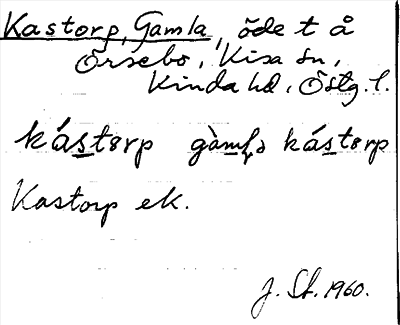 Kastorp, Gamla, öde t å
Örsebo, Kisa sn,
Kinda hd, Östg. l.
kástorp gàmḷa kástorp
Kastorp ek.
J. St. 1960.